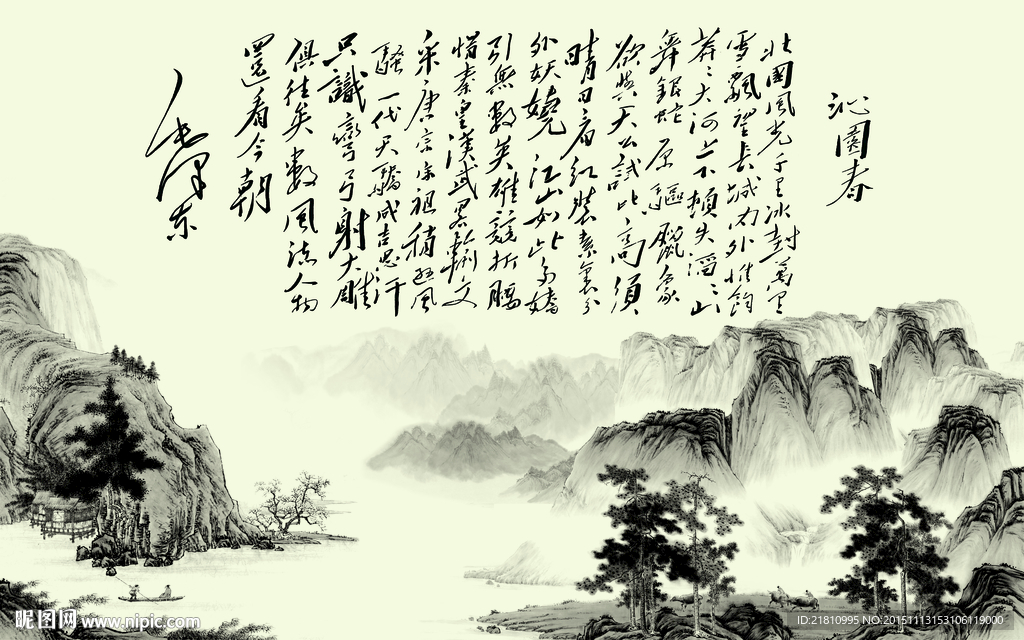 沁園春
北國風光千里冰封萬里
雪飄望長城內外惟餘
莽〻大河上下頓失滔〻山
舞銀蛇原驅臘象
欲與天公試比高須
晴日看紅裝素裹分
外妖嬈江山如此多嬌
引無數英雄競折腰
惜秦皇漢武略輸文
采唐宗宋祖稍遜風
騷一代天驕成吉思汗
只識彎弓射大雕
俱往矣數風流人物
還看今朝
毛澤东
昵图网 www.nipic.com
ID:21810995 NO:20151113153106119000